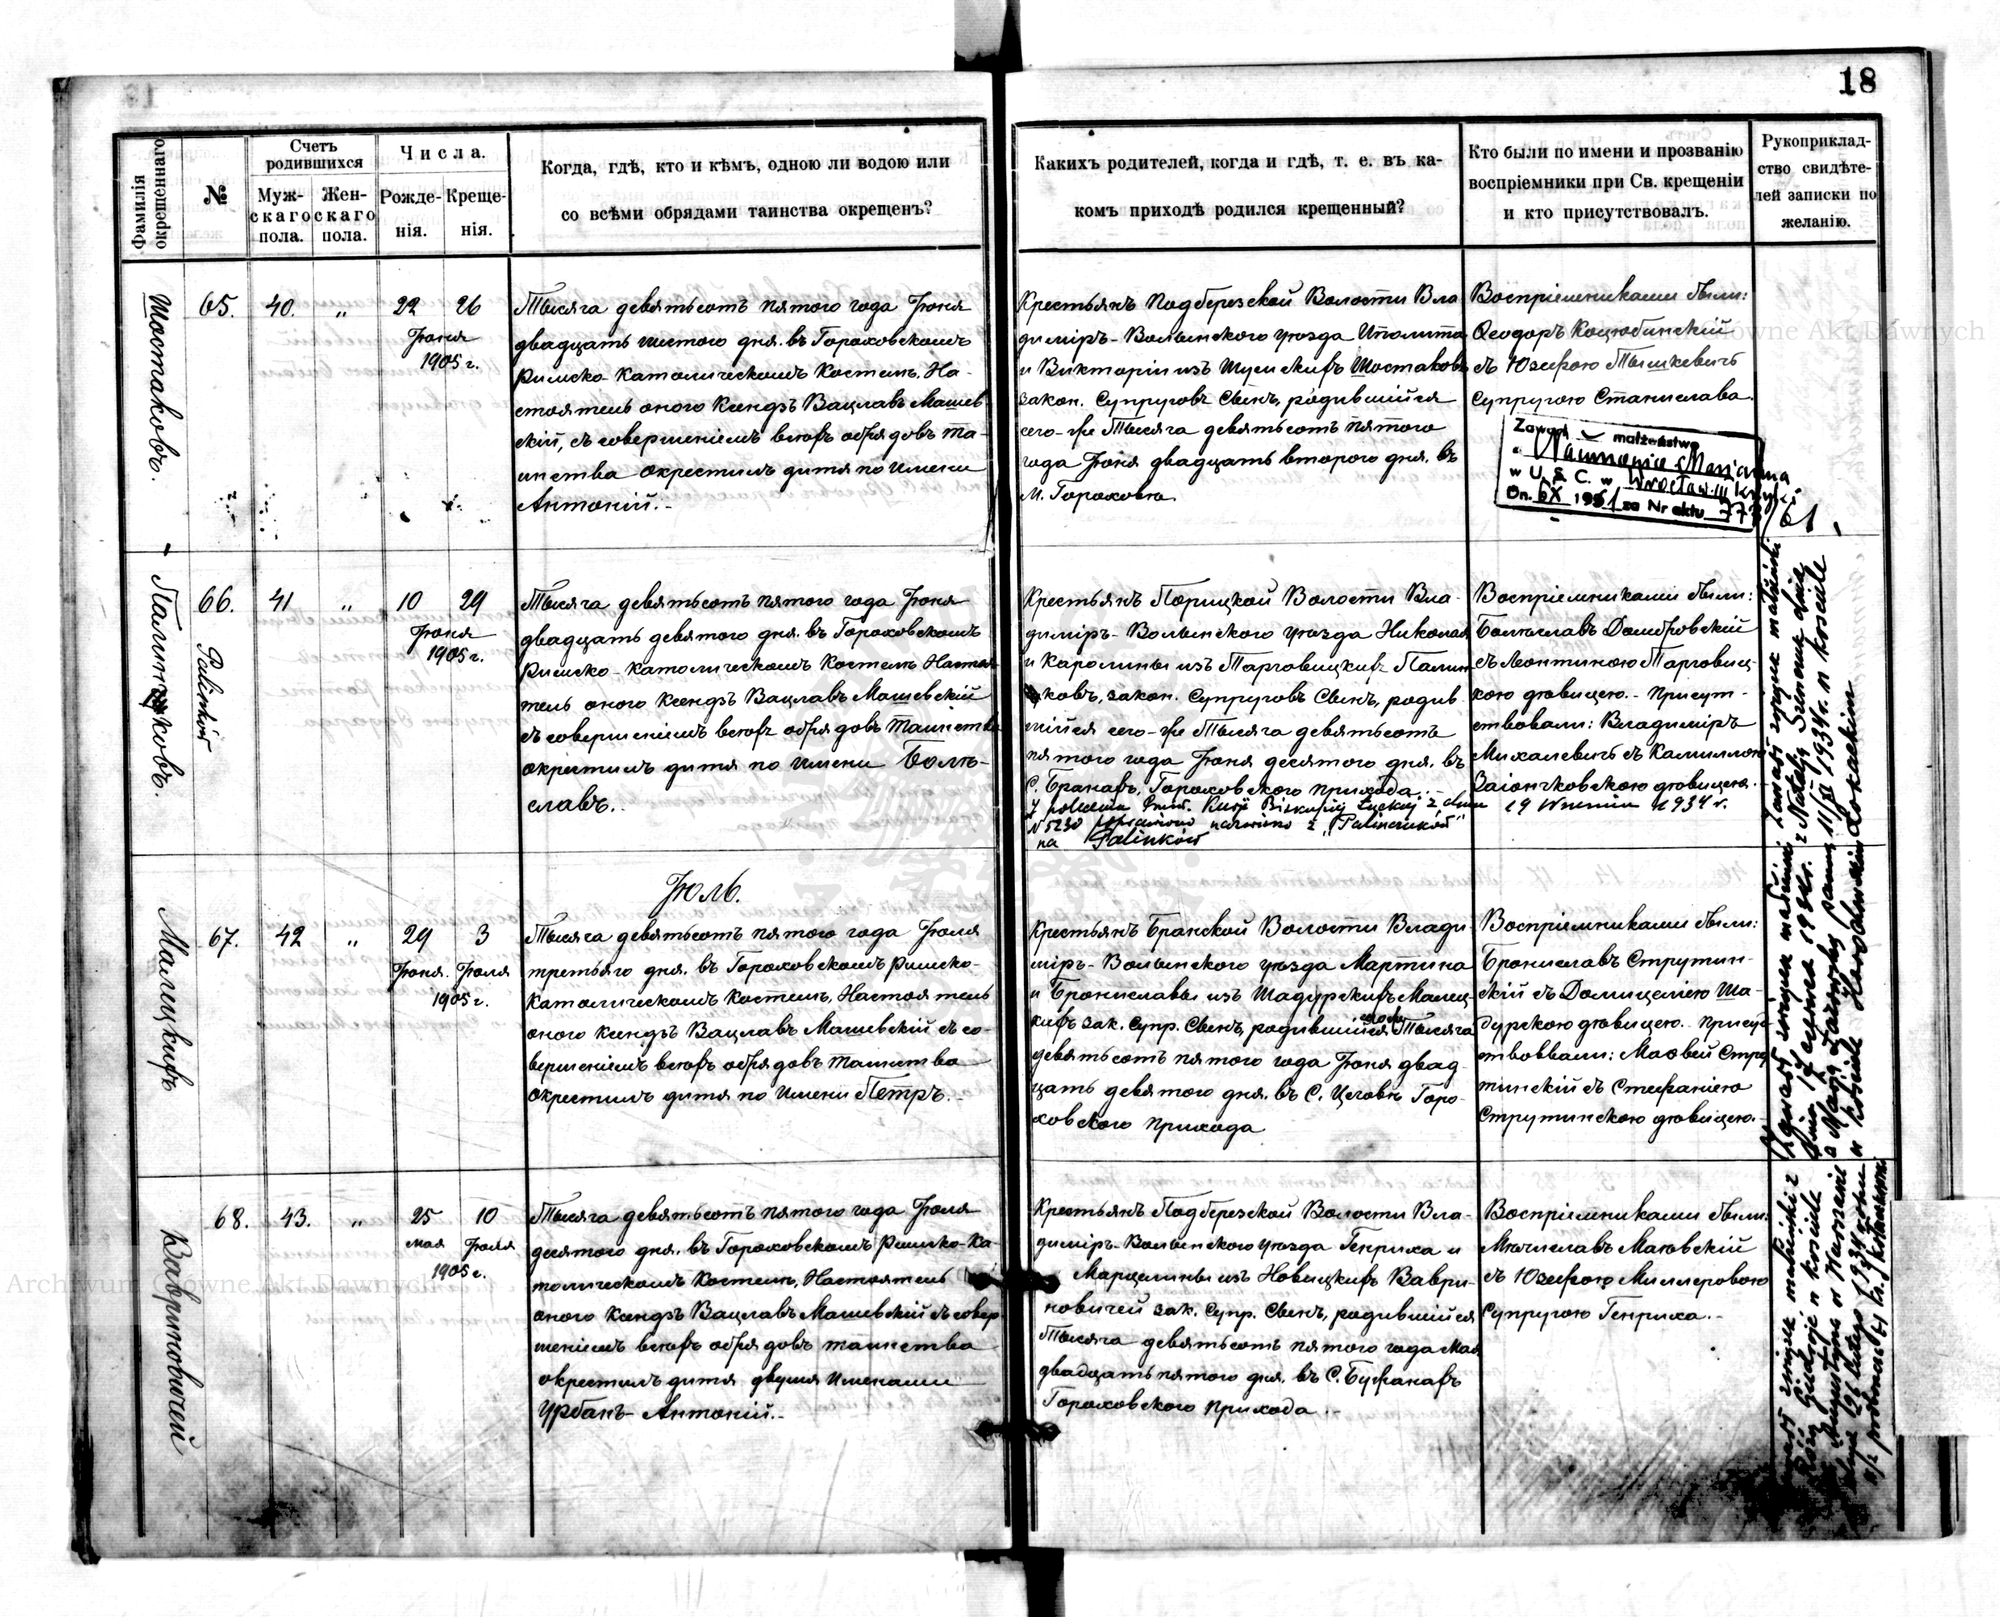 18
Фамилія окрещеннаго.
№
Счетъ родившихся
Муж-
скаго
пола.
Жен-
скаго
пола.
Числа.
Рожде-
нія.
Креще-
нія.
Когда, гдѣ, кто и кѣмъ, одною ли водою или
со всѣми обрядами таинства окрещенъ?
Какихъ родителей, когда и гдѣ, т. е. въ ка-
комъ приходѣ родился крещенный?
Кто были по имени и прозванію
воспріемники при Св. крещеніи
и кто присутствовалъ.
Рукоприклад-
ство свидѣте-
лей записки по
желанію.
Шостаковъ.
65.
40.
„
22
26
Іюня
1905 г.
Тысяча девятьсотъ пятого года Іюня
двадцать шестого дня. въ Гороховскомъ
Римско-Католическомъ Костелѣ. На-
стоятель оного Ксендзъ Вацлавъ Машев
скій, съ совершеніемъ всѣхъ обрядовъ та-
инства окрестилъ дитя по имени
Антоній.-
Крестьянъ Подберезской Волости Вла
диміръ-Волынского уѣзда Иполита
и Викторіи изъ Шумскихъ Шостаковъ
закон. Супруговъ Сынъ, родившійся
сего-же Тысяча девятьсотъ пятого
года Іюня двадцать второго дня. въ
м. Гороховѣ.
Воспріемниками были:
Ѳеодоръ Коцюбинскій
съ Юзефою Тышкевичъ
Супругою Станислава.
Zawarł małżeństwo
Marianna
w U. S. C. w Wrocław III
Dn. 6X 1961 za Nr aktu 773/61.
Палинковъ.
66.
Palinków
41
„
10
29
Іюня
1905 г.
Тысяча девятьсотъ пятого года Іюня
двадцать девятого дня. въ Гороховскомъ
Римско-католическомъ Костелѣ Настоя
тель оного Ксендзъ Вацлавъ Машевскій
съ совершеніемъ всѣхъ обрядовъ Таинства
окрестилъ дитя по имени Боле-
славъ..
Крестьянъ Порицкой Волости Вла-
диміръ-Волынского уѣзда Николая
и Каролины изъ Тарговицкихъ Палин
ковъ, закон. Супруговъ Сынъ, родив
шійся сего-же Тысяча девятьсотъ
пятого года Іюня десятого дня. въ
С. Бранахъ, Гороховского прихода.-
Z polecenia Kurji Biskupiej Łuckiej z dnia 19 Września 1934 r.
N 5230 poprawiono nazwisko z „Palinczuków"
na Palinków
Воспріемниками были:
Болеславъ Домбровскій
съ Леонтиною Тарговиц-
кою дѣвицею.- Присут-
ствовали: Владиміръ
Михалевичъ съ Камиллою
Заіончковскою дѣвицею.
Іюль.
Малецкихъ
67.
42
„
29
3
Іюня. Іюля
1905 г.
Тысяча девятьсотъ пятого года Іюля
третьяго дня. въ Гороховскомъ Римско-
католическомъ Костелѣ, Настоятель
оного Ксендзъ Вацлавъ Машевскій съ со-
вершеніемъ всѣхъ обрядовъ таинства
окрестилъ дитя по имени Петръ.-
Крестьянъ Бранской Волости Влади
міръ-Волынского уѣзда Мартина
и Брониславы изъ Шадурскихъ Малец-
кихъ зак. Супр. Сынъ, родившійся Тысяча
девятьсотъ пятого года Іюня двад
цать девятого дня. въ С. Цеговѣ Горо-
ховского прихода
Воспріемниками были:
Брониславъ Струтин-
скій съ Домицелію Ша-
дурскою дѣвицею. Присут
ствовали: Матвей Стру
тинскій съ Стефаніею
Струтинскою дѣвицею.-
Вавриновичей
68.
43.
„
25
10
мая Іюля
1905 г.
Тысяча девятьсотъ пятого года Іюля
десятого дня. въ Гороховскомъ Римско-Ка-
толическомъ Костелѣ, Настоятель
оного Ксендзъ Вацлавъ Машевскій съ совер
шеніемъ всѣхъ обрядовъ таинства
окрестилъ дитя двумя именами
Урбанъ-Антоній.-
Крестьянъ Подберезской Волости Вла-
диміръ-Волынского уѣзда Генриха и
Марцелины изъ Новицкихъ Ваври
новичей зак. Супр. Сынъ, родившійся
Тысяча девятьсотъ пятого года Мая
двадцать пятого дня. въ С. Бужанахъ
Гороховского прихода.-
Воспріемниками были:
Мечиславъ Маковскій
съ Юзефою Миллеровою
Супругою Генриха.-
Archiwum Główne Akt Dawnych
Archiwum Główne Akt Dawnych